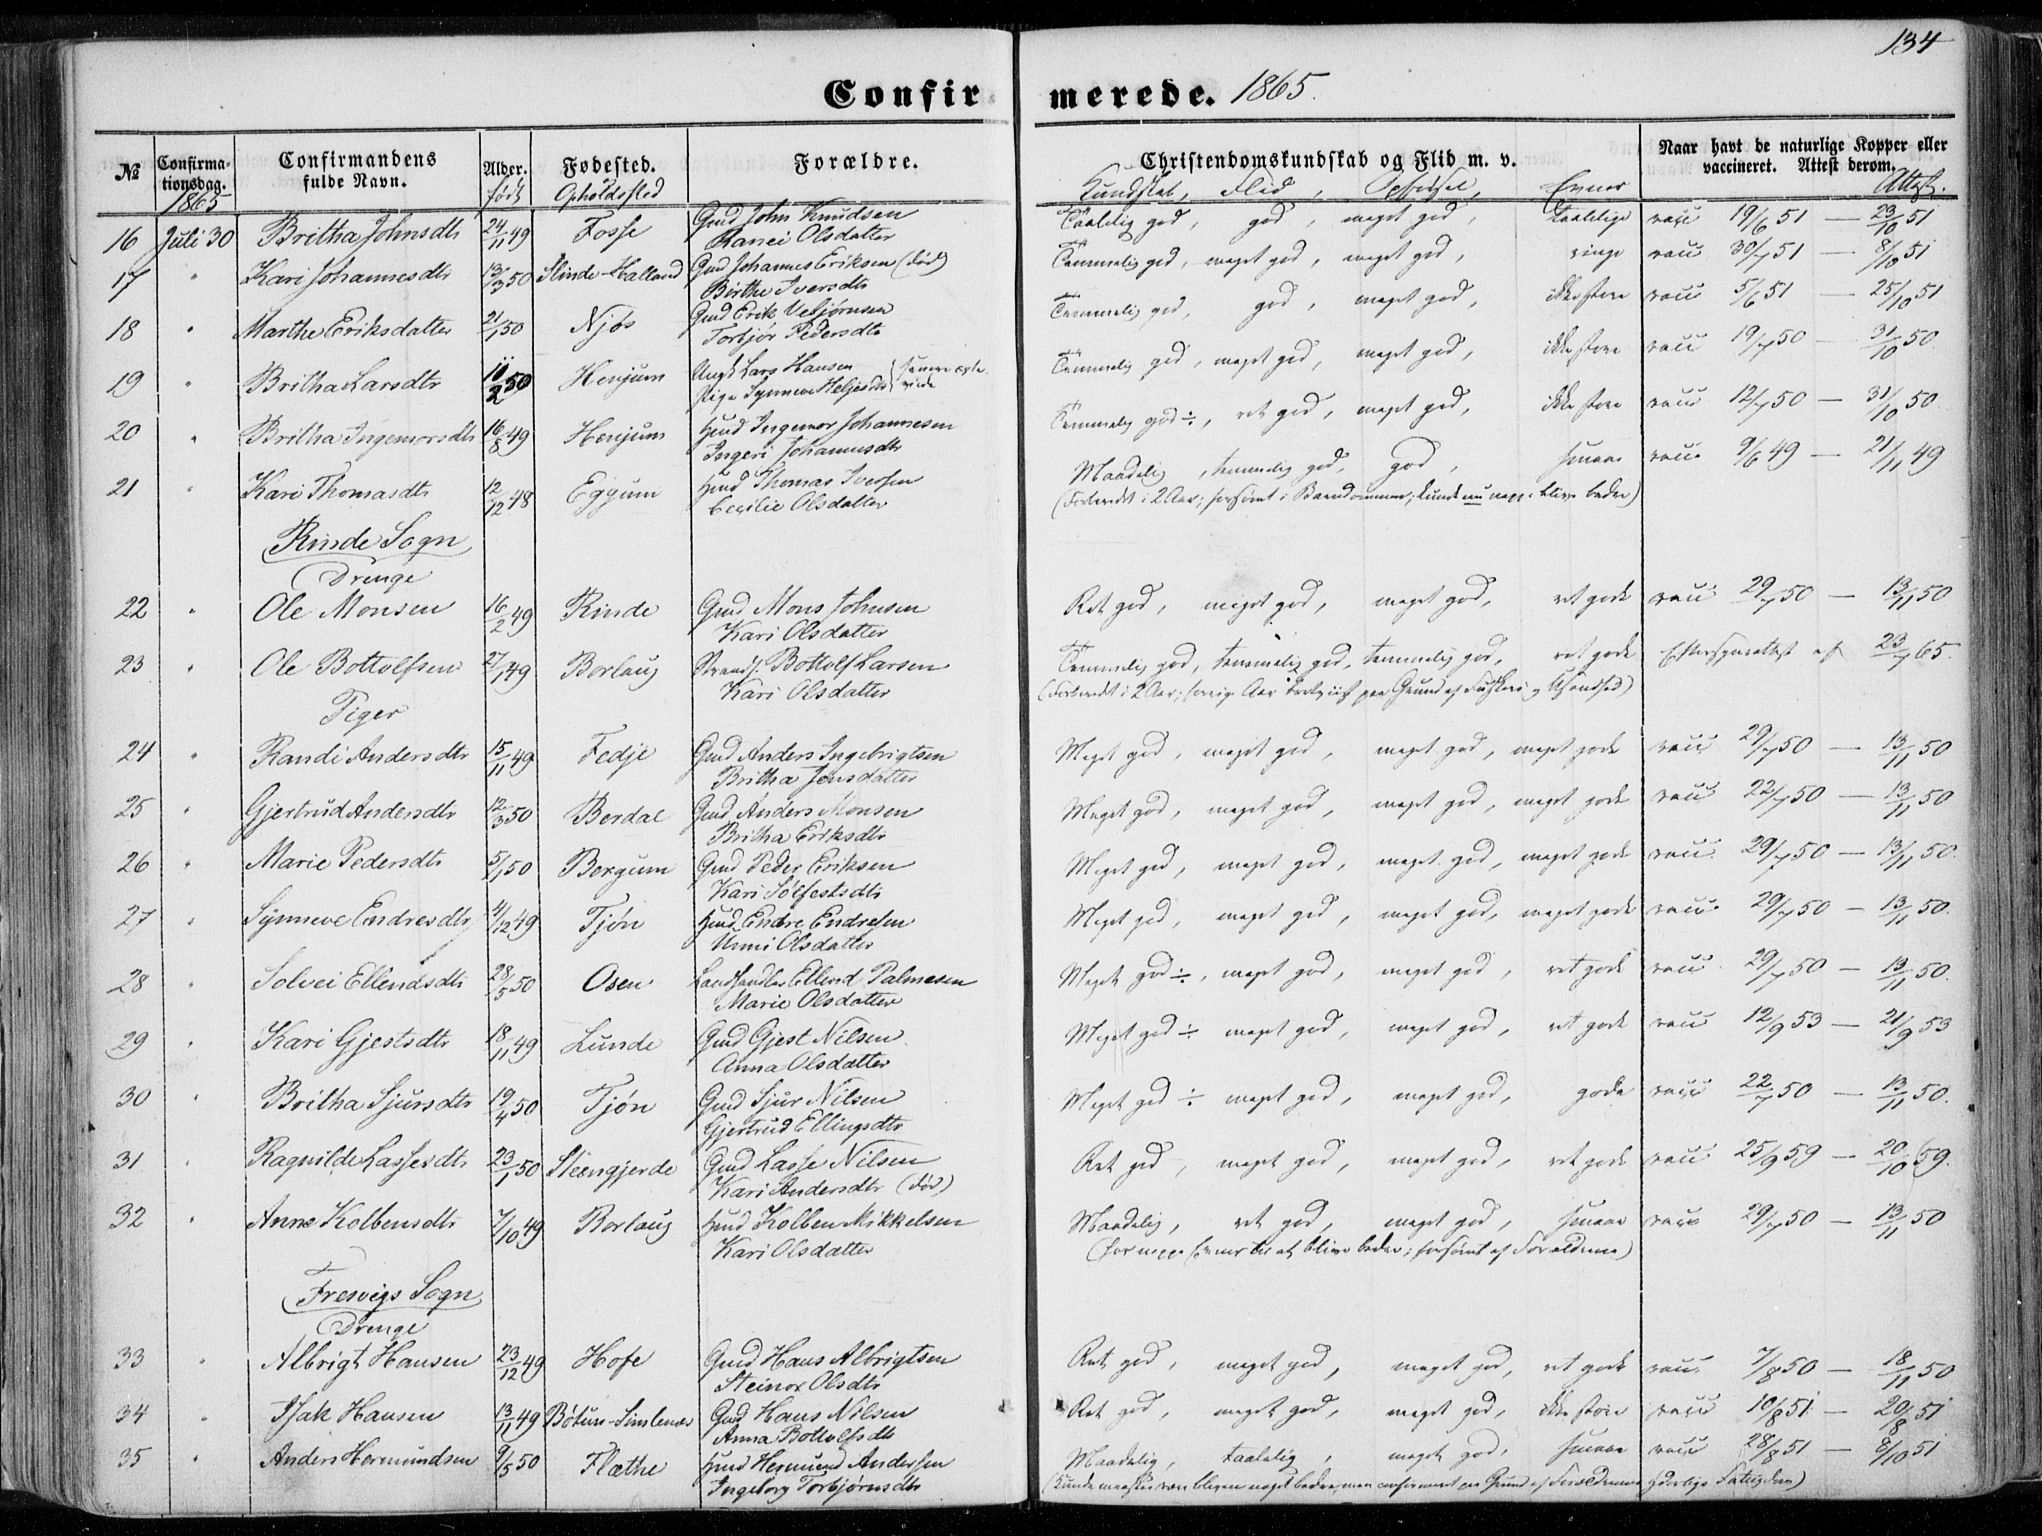 134
Confirmerede. 1865.
№ Confirmationsdag. Confirmandens fulde Navn. Alder. Fødested. Forældre. Christendomskundskab og Flid m. v. Naar havt de naturlige Kopper eller vaccineret. Attest derom.
1865 født Opholdssted Kundskab, Flid, Opførsel, Evner Attest.
16 Juli 30 Britha Johnsdtr 24/11 49 Fosse Gmd John Knudsen Taalelig god, god, meget god, taalelige vacc 19/6 51 — 23/10 51
Ranei Olsdatter
17 " Kari Johannesdtr 13/3 50 Slinde-Halland Gmd Johannes Eriksen (død) Temmelig god, meget god, meget god, ringe vacc 30/7 51 — 8/10 51
Birthe Iversdtr
18 " Marthe Eriksdatter 21/1 50 Njøs Gmd Erik Vebjørnsen Temmelig god, god, meget god, ikke store vacc 5/6 51 — 25/10 51
Torbjør Pedersdtr
19 " Britha Larsdtr 10/2 50 Henjum Ungk Lars Hansen Temmelig god, meget god, meget god, ikke store vacc 19/7 50 — 31/10 50
Pige Synneve Heljesdtr (senere ægteviede
20 " Britha Ingemorsdtr 16/8 49 Henjum Hmd Ingemor Johannesen Temmelig god ÷, ret god, meget god, ikke store vacc 12/7 50 — 31/10 50
Ingeri Johannesdtr
21 " Kari Thomasdtr 12/12 48 Eggum Hmd Thomas Iversen Maadelig, temmelig god, god, smaae vacc 9/6 49 — 21/11 49
Cecilie Olsdatter (Forberedt i 2 Aar; forsømt i Barndommen; kunde nu neppe blive bedre)
Rinde Sogn
Drenge
22 " Ole Monsen 16/2 49 Rinde Gmd Mons Johnsen Ret god, meget god, meget god, ret gode vacc 29/7 50 — 13/11 50
Kari Olsdatter
23 " Ole Bottolfsen 27/1 49 Borlaug Strands. Bottolf Larsen Temmelig god, temmelig god, temmelig god, ret gode af 23/7 65.
Kari Olsdatter (Forberedt i 2 Aar; forrige Aar paa Grund af Fiskeri og
Piger
24 " Randi Andersdtr 15/11 49 Fedje Gmd Anders Ingebrigtsen Meget god, meget god, meget god, meget gode vacc 29/7 50 — 13/11 50
Britha Jensdatter
25 " Gjertrud Andersdtr 12/3 50 Berdal Gmd Anders Monsen Meget god, meget god, meget god, meget gode vacc 22/7 50 — 13/11 50
Britha Eriksdtr
26 " Marie Pedersdtr 5/1 50 Bergum Gmd Peder Eriksen Meget god, meget god, meget god, meget gode vacc. 29/7 50 — 13/11 50.
Kari Sølfestsdtr
27 " Synneve Endresdtr 4/12 49 Tjøn Hmd Endre Endresen Meget god, meget god, meget god, meget gode vacc. 29/7 50 — 13/11 50.
Unni Olsdatter
28 " Solvei Ellendsdtr 28/5 50 Osen Landhandler Ellend Palmesen Meget god ÷, meget god, meget god, ret gode vacc. 29/7 50 — 13/11 50.
Marie Olsdatter
29 " Kari Gjestsdtr 18/11 49 Lunde Gmd Gjest Nilsen Meget god ÷ meget god, meget god, ret gode vacc 12/9 53 — 21/9 53
Anna Olsdatter
30 " Britha Sjursdtr 19/4 50 Tjøn Gmd Sjur Nilsen Meget god ÷ meget god, meget god, gode vacc 22/7 50 — 13/11 50.
Gjertrud Ellingsdtr
31 " Ragnilde Lassesdtr 23/1 50 Steengjerde Gmd Lasse Nilsen Ret god, meget god, meget god, ret gode vacc 25/9 59 — 20/10 59.
Kari Andersdtr (død)
32 " Anne Kolbensdtr 7/10 49 Borlaug Hmd Kolben Mikkelsen Maadelig, ret god, meget god, smaae vacc 29/7 50 — 13/11 50
Kari Olsdatter (har neppe Evner til at blive bedre; forsømt af Forældrene)
Fresvigs Sogn
Drenge
33 " Albrigt Hansen 23/12 49 Hofe Gmd Hans Albrigtsen Ret god, meget god, meget god, ret gode vacc. 7/8 50 — 18/11 50
Steinor Olsdtr
34 " Isak Hansen 13/11 49 Bøtun-Simlenæs Gmd Hans Nilsen Ret god, meget god, meget god, ikke store vacc 10/8 51 — 20/8 51
Anna Bottolfsdtr
35 " Anders Hermundsen 9/5 50 Flæthe Hmd Hermund Andersen Maadelig, taalelig, meget god, smaae vacc 28/8 51 — 8/10 51
Ingeborg Torbjørnsdtr (Kunde maaskee være bleven noget bedre, men confirmeret paa Grund af Forældrenes yderlige Fattigdom)